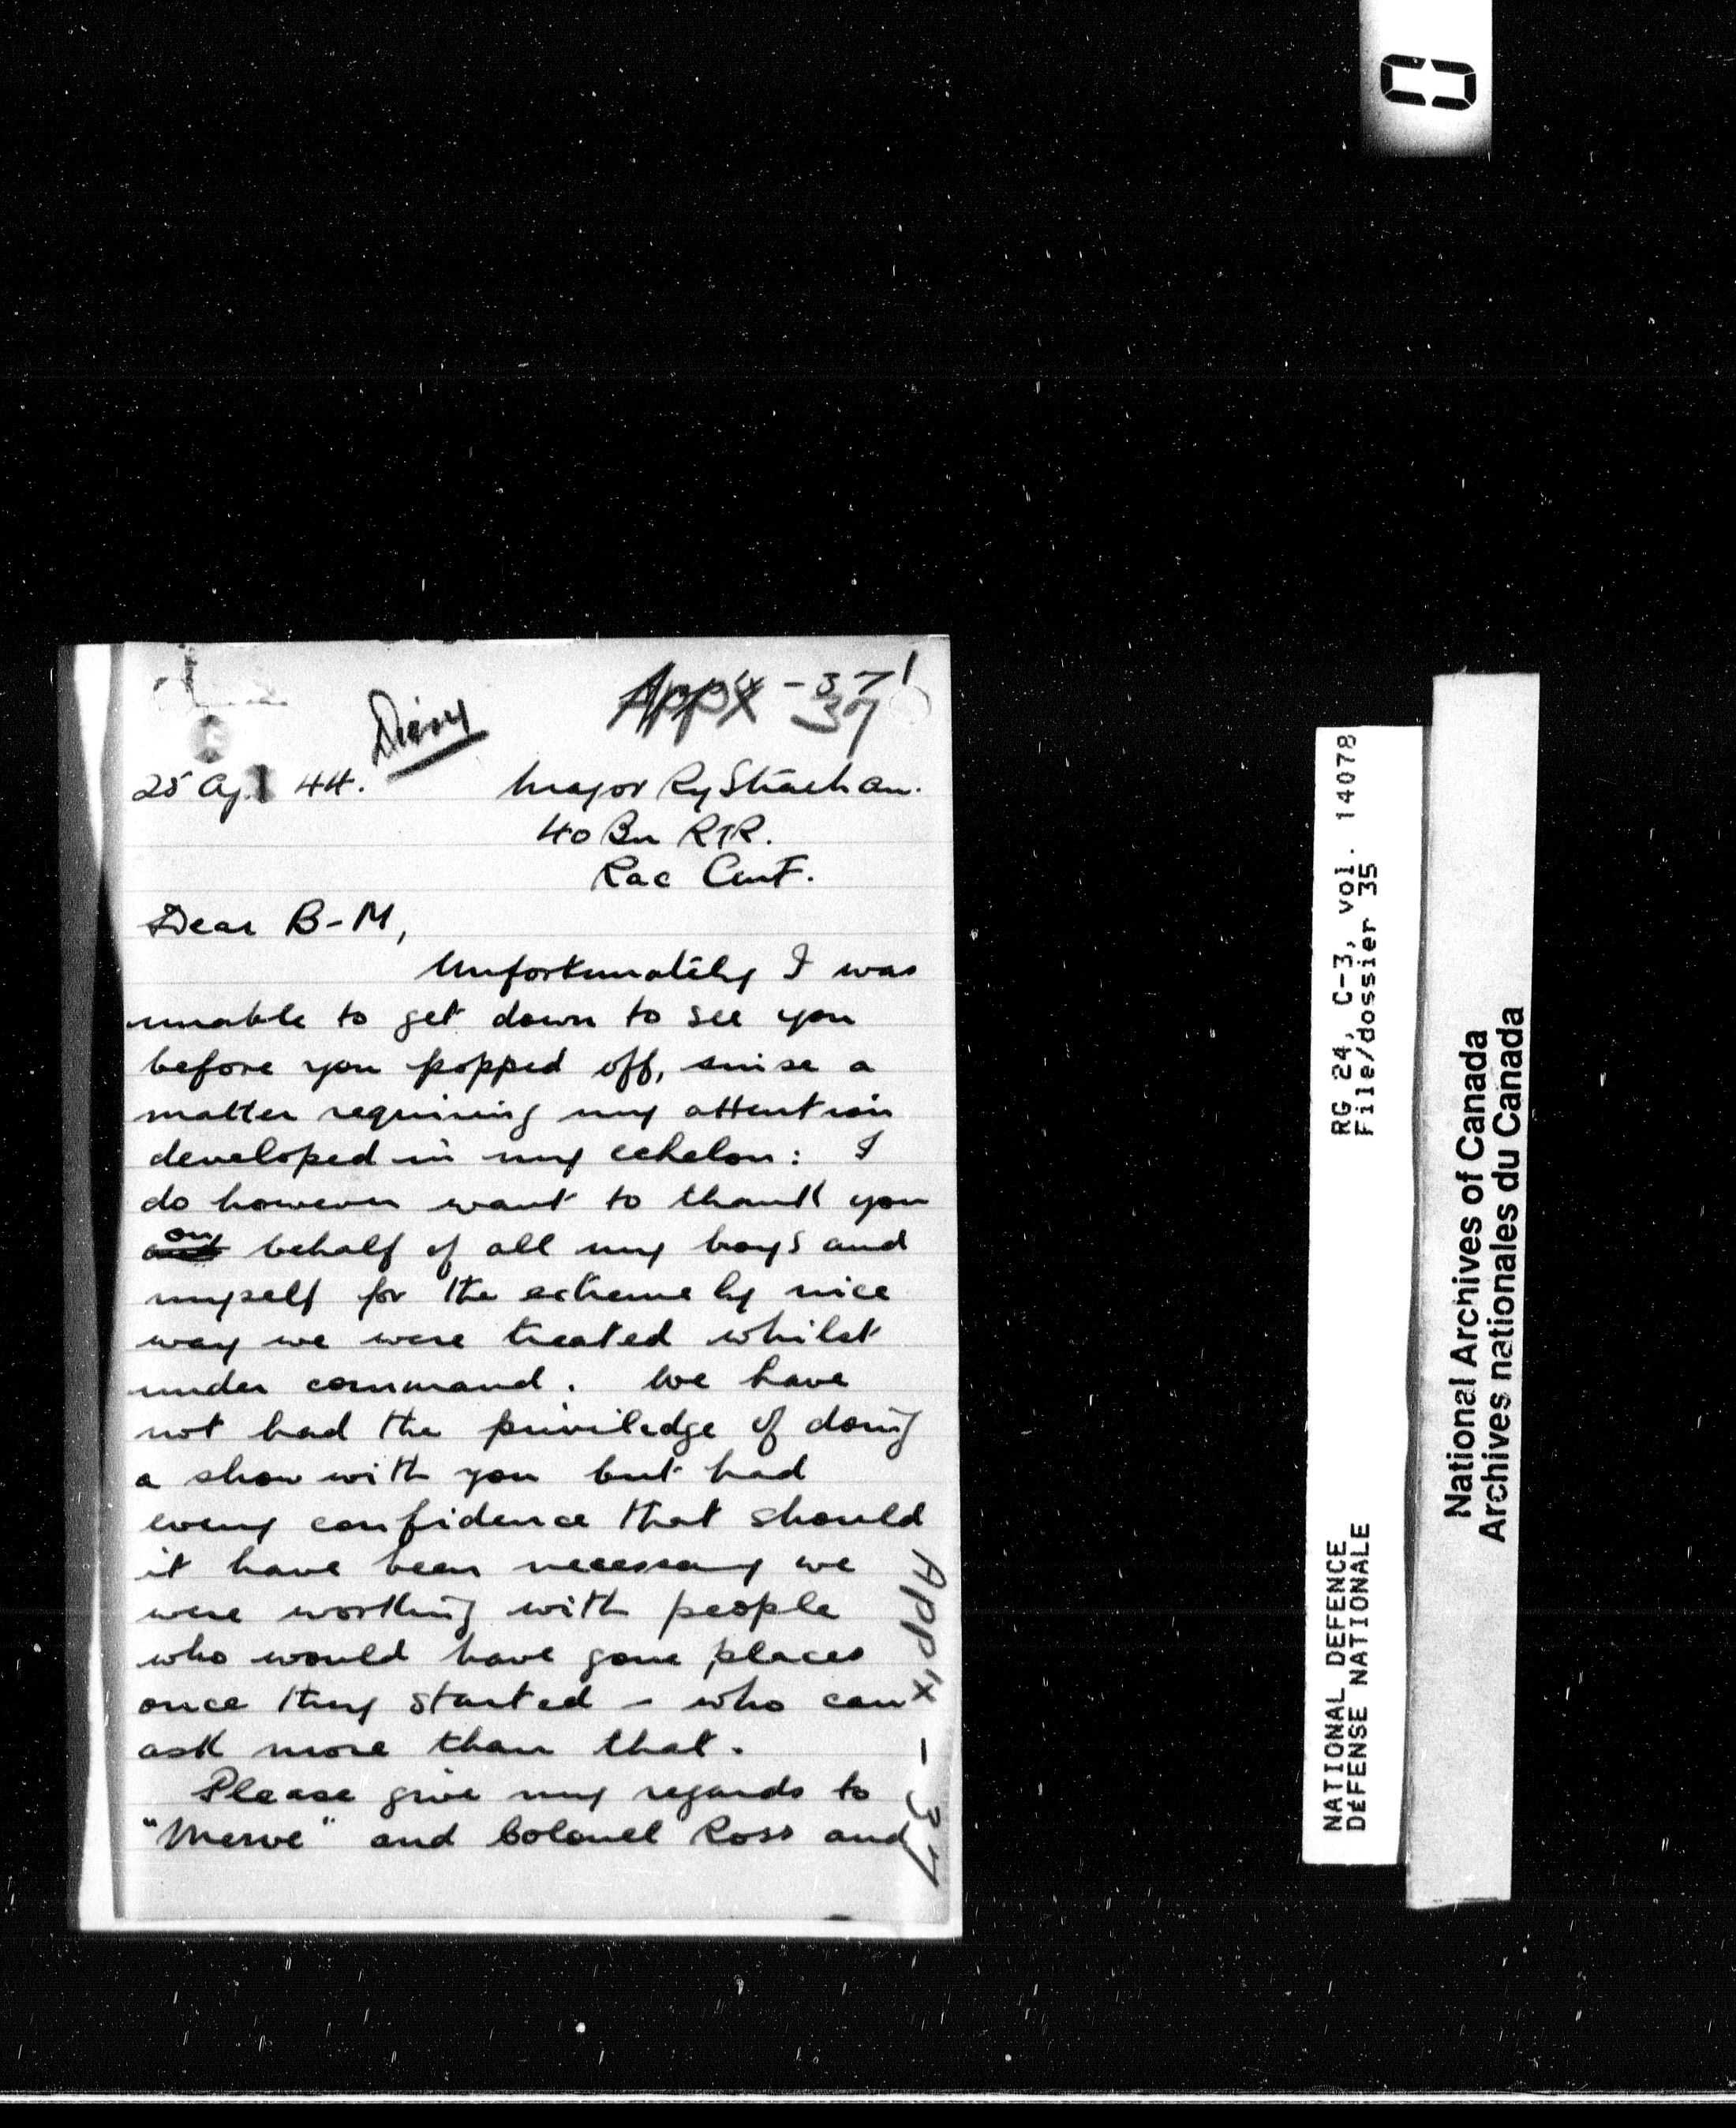 Diary
Appx - 37
37
25 Apl 44.
Major Ry Strachan.
40 Bn RTR.
Rac Cmt.
Dear B-M,
Unfortunately I was
unable to get down to see you
before you popped off, since a
matter requiring my attention
developed in my echelon: I
do however want to thank you
on behalf of all my boys and
myself for the extremely nice
way we were treated whilst
under command. We have
not had the priviledge of doing
a show with you but had
every confidence that should
it have been necessary we
were working with people
who would have gone places
once they started - who can
ask more than that.
Please give my regards to
"Merve" and Colonel Ross and
Appx - 37
RG 24, C-3, vol. 14078
File/dossier 35
NATIONAL DEFENCE
DÉFENSE NATIONALE
National Archives of Canada
Archives nationales du Canada